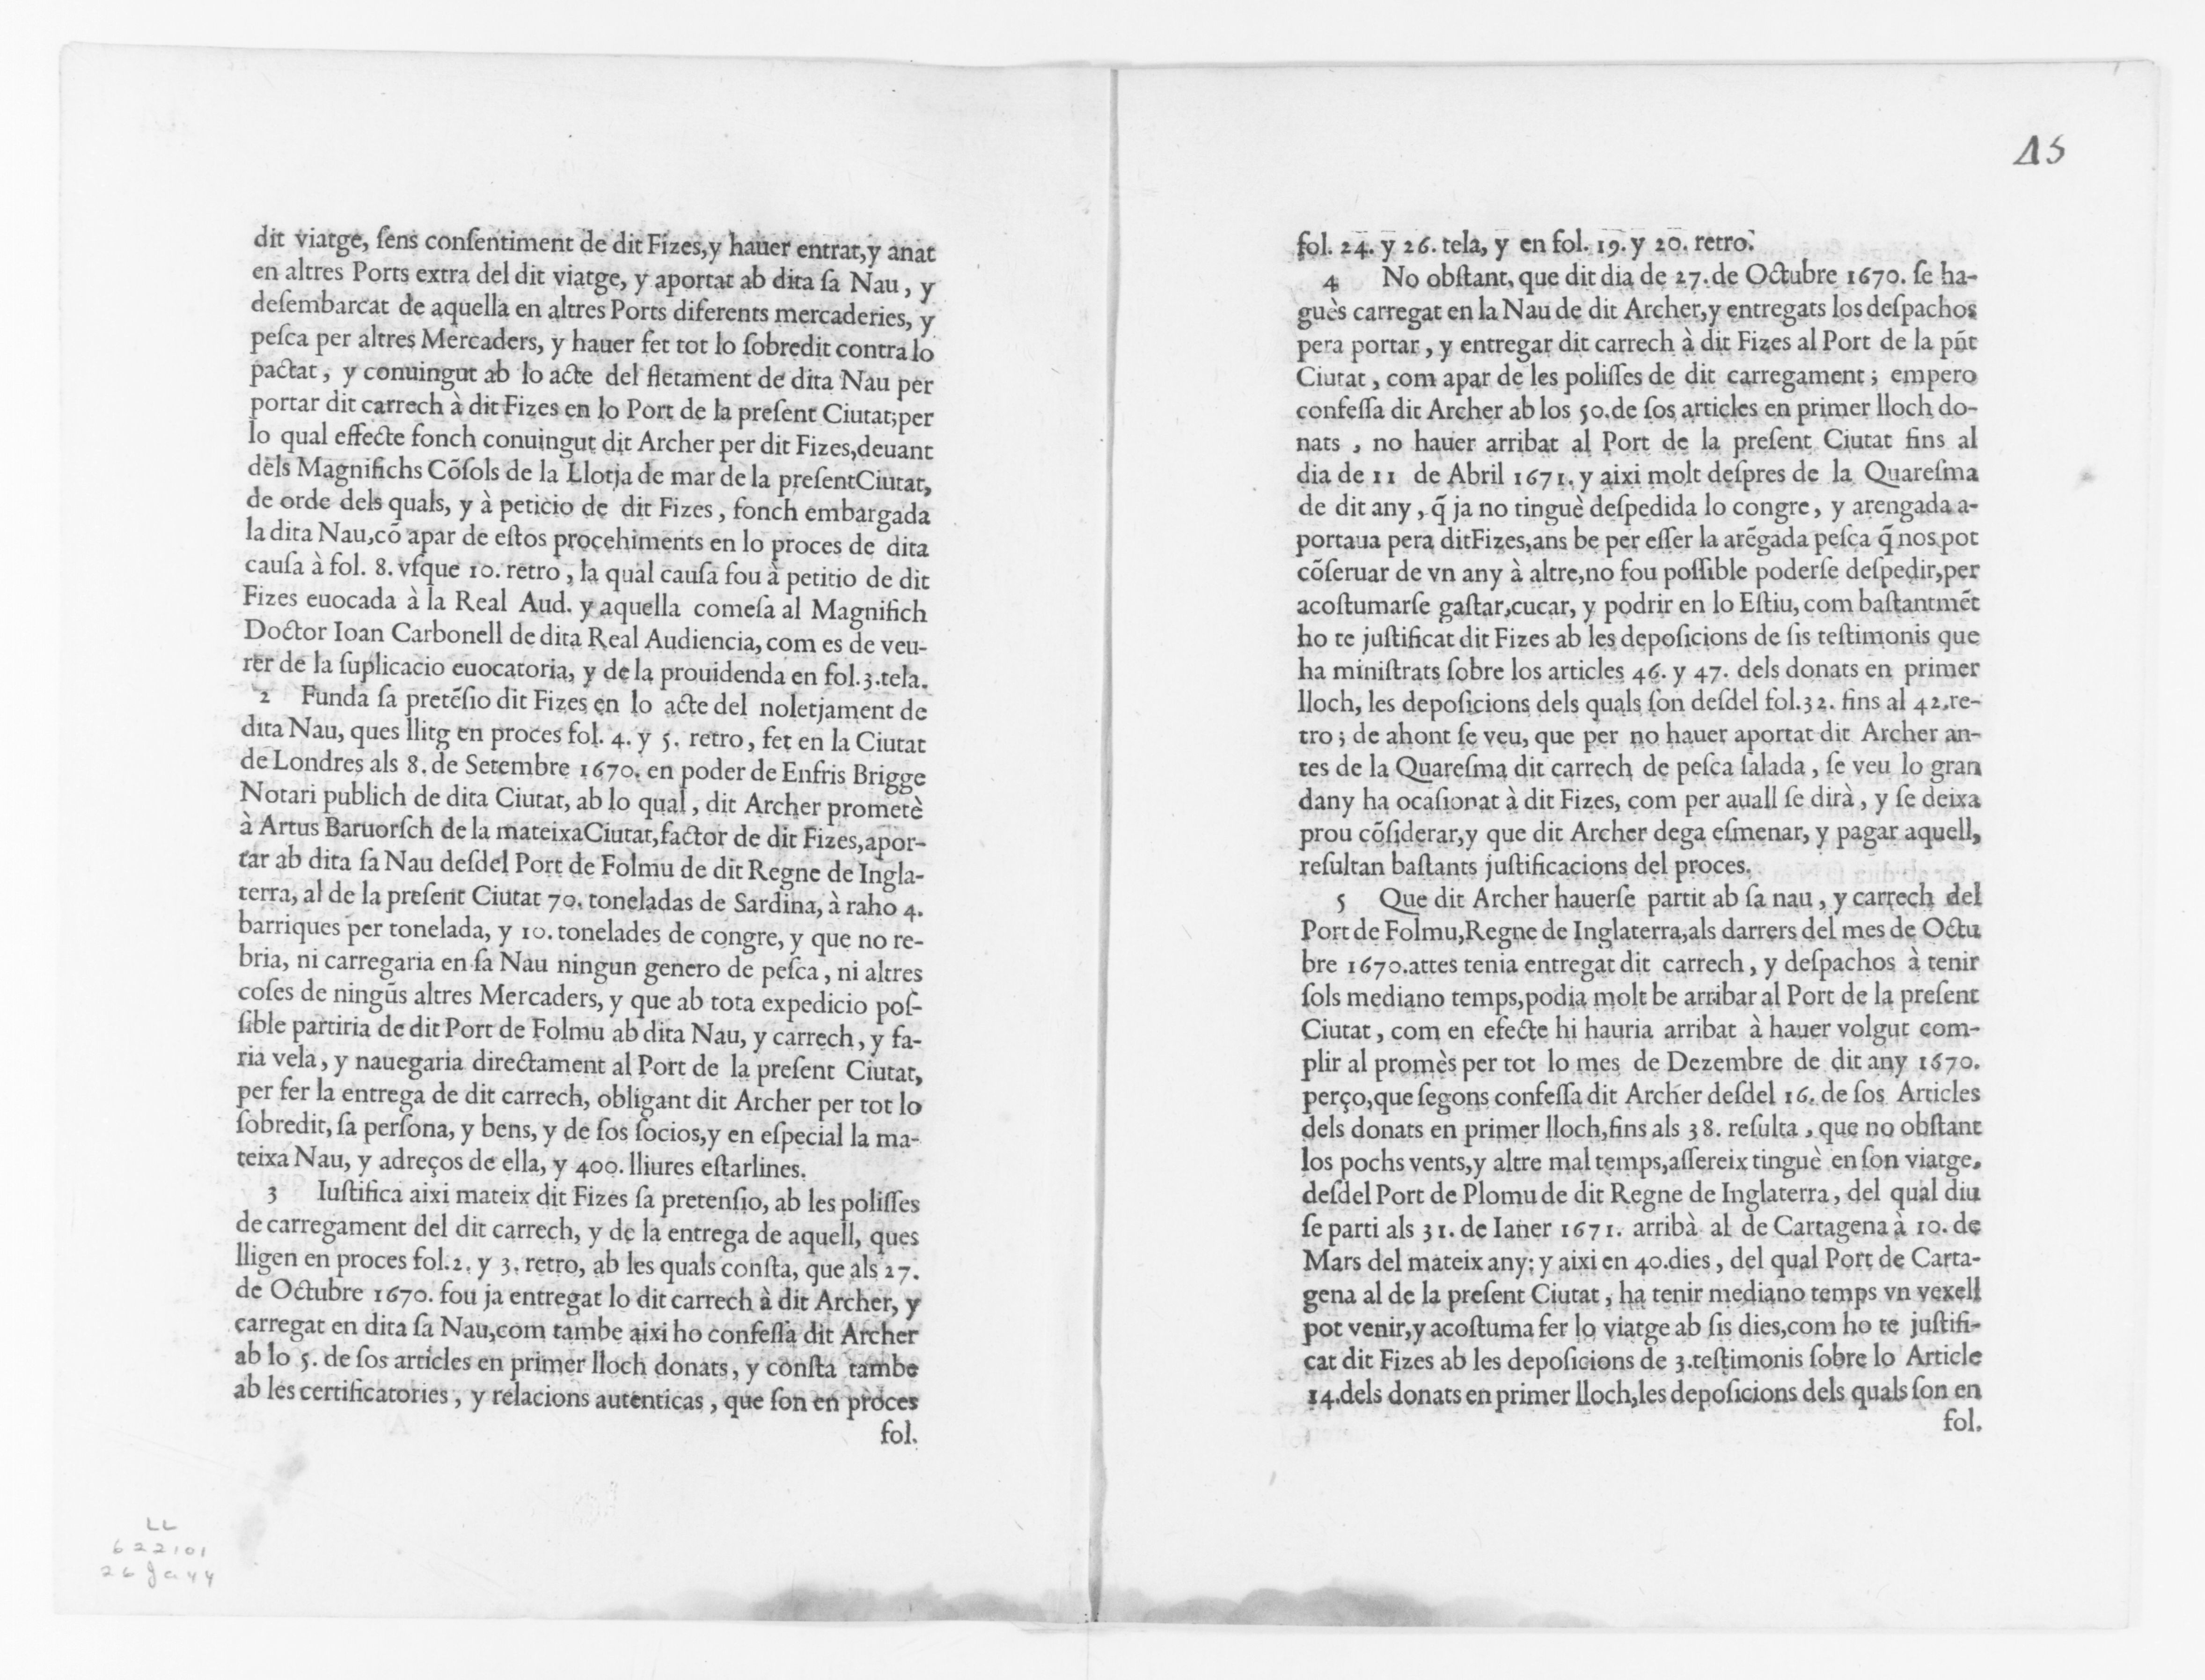 dit viatge, ſens conſentiment de dit Fizes,y hauer entrat,y anat
en altres Ports extra del dit viatge, y aportat ab dita ſa Nau, y
deſembarcat de aquella en altres Ports diferents mercaderies, y
peſca per altres Mercaders, y hauer fet tot lo ſobredit contra lo
pactat, y conuingut ab lo acte del fletament de dita Nau per
portar dit carrech à dit Fizes en lo Port de la preſent Ciutat;per
lo qual effecte fonch conuingut dit Archer per dit Fizes,deuant
dels Magnifichs Cõſols de la Llotja de mar de la preſentCiutat,
de orde dels quals, y à peticio de dit Fizes, fonch embargada
la dita Nau,cõ apar de eſtos procehiments en lo proces de dita
cauſa à fol. 8. vſque 10. retro, la qual cauſa fou à petitio de dit
Fizes euocada à la Real Aud. y aquella comeſa al Magnifich
Doctor Ioan Carbonell de dita Real Audiencia, com es de veu-
rer de la ſuplicacio euocatoria, y de la prouidenda en fol.3.tela.
2 Funda ſa pretẽſio dit Fizes en lo acte del noletjament de
dita Nau, ques llitg en proces fol. 4. y 5. retro, fet en la Ciutat
de Londres als 8. de Setembre 1670. en poder de Enfris Brigge
Notari publich de dita Ciutat, ab lo qual, dit Archer prometè
à Artus Baruorſch de la mateixaCiutat,factor de dit Fizes,apor-
tar ab dita ſa Nau deſdel Port de Folmu de dit Regne de Ingla-
terra, al de la preſent Ciutat 70. toneladas de Sardina, à raho 4.
barriques per tonelada, y 10. tonelades de congre, y que no re-
bria, ni carregaria en ſa Nau ningun genero de peſca, ni altres
coſes de ningũs altres Mercaders, y que ab tota expedicio poſ-
ſible partiria de dit Port de Folmu ab dita Nau, y carrech, y fa-
ria vela, y nauegaria directament al Port de la preſent Ciutat,
per fer la entrega de dit carrech, obligant dit Archer per tot lo
ſobredit, ſa perſona, y bens, y de ſos ſocios,y en eſpecial la ma-
teixa Nau, y adreços de ella, y 400. lliures eſtarlines.
3 Iuſtifica aixi mateix dit Fizes ſa pretenſio, ab les poliſſes
de carregament del dit carrech, y de la entrega de aquell, ques
lligen en proces fol.2. y 3. retro, ab les quals conſta, que als 27.
de Octubre 1670. fou ja entregat lo dit carrech à dit Archer, y
carregat en dita ſa Nau,com tambe aixi ho confeſſa dit Archer
ab lo 5. de ſos articles en primer lloch donats, y conſta tambe
ab les certificatories, y relacions autenticas, que ſon en proces
fol.
45
fol. 24. y 26. tela, y en fol. 19. y 20. retro.
4 No obſtant, que dit dia de 27.de Octubre 1670. ſe ha-
guès carregat en la Nau de dit Archer,y entregats los deſpachos
pera portar, y entregar dit carrech à dit Fizes al Port de la pñt
Ciutat, com apar de les poliſſes de dit carregament; empero
confeſſa dit Archer ab los 50.de ſos articles en primer lloch do-
nats, no hauer arribat al Port de la preſent Ciutat fins al
dia de 11 de Abril 1671. y aixi molt deſpres de la Quareſma
de dit any, q̃ ja no tinguè deſpedida lo congre, y arengada a-
portaua pera ditFizes,ans be per eſſer la arẽgada peſca q̃ nos pot
cõſeruar de vn any à altre,no fou poſſible poderſe deſpedir,per
acoſtumarſe gaſtar,cucar, y podrir en lo Eſtiu, com baſtantmẽt
ho te juſtificat dit Fizes ab les depoſicions de ſis teſtimonis que
ha miniſtrats ſobre los articles 46. y 47. dels donats en primer
lloch, les depoſicions dels quals ſon deſdel fol.32. fins al 42.re-
tro; de ahont ſe veu, que per no hauer aportat dit Archer an-
tes de la Quareſma dit carrech de peſca ſalada, ſe veu lo gran
dany ha ocaſionat à dit Fizes, com per auall ſe dirà, y ſe deixa
prou cõſiderar,y que dit Archer dega eſmenar, y pagar aquell,
reſultan baſtants juſtificacions del proces.
5 Que dit Archer hauerſe partit ab ſa nau, y carrech del
Port de Folmu,Regne de Inglaterra,als darrers del mes de Octu
bre 1670.attes tenia entregat dit carrech, y deſpachos à tenir
ſols mediano temps,podia molt be arribar al Port de la preſent
Ciutat, com en efecte hi hauria arribat à hauer volgut com-
plir al promès per tot lo mes de Dezembre de dit any 1670.
perço,que ſegons confeſſa dit Archer deſdel 16. de ſos Articles
dels donats en primer lloch,fins als 38. reſulta, que no obſtant
los pochs vents,y altre mal temps,aſſereix tinguè en ſon viatge,
deſdel Port de Plomu de dit Regne de Inglaterra, del qual diu
ſe parti als 31. de Ianer 1671. arribà al de Cartagena à 10. de
Mars del mateix any; y aixi en 40.dies, del qual Port de Carta-
gena al de la preſent Ciutat, ha tenir mediano temps vn vexell
pot venir,y acoſtuma fer lo viatge ab ſis dies,com ho te juſtifi-
cat dit Fizes ab les depoſicions de 3.teſtimonis ſobre lo Article
14.dels donats en primer lloch,les depoſicions dels quals ſon en
fol.
LL
622101
26 Ja 44